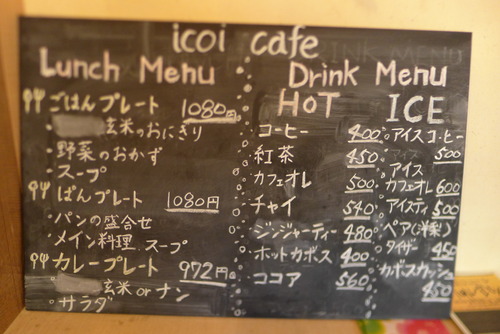 icoi cafe
Lunch Menu
ごはんプレート 1080円
・玄米のおにぎり
・野菜のおかず
・スープ
ぱんプレート 1080円
・パンの盛合せ
・メイン料理 ・スープ
カレープレート 972円
・玄米 or ナン
・サラダ
Drink Menu
HOT
コーヒー 400
紅茶 450
カフェオレ 500
チャイ 540
ジンジャーティー 480
ホットカボス 400
ココア 560
ICE
アイスコーヒー
500
アイス
カフェオレ 600
アイスティ 500
ペア(洋梨)
タイザー 450
カボスカッシュ
450